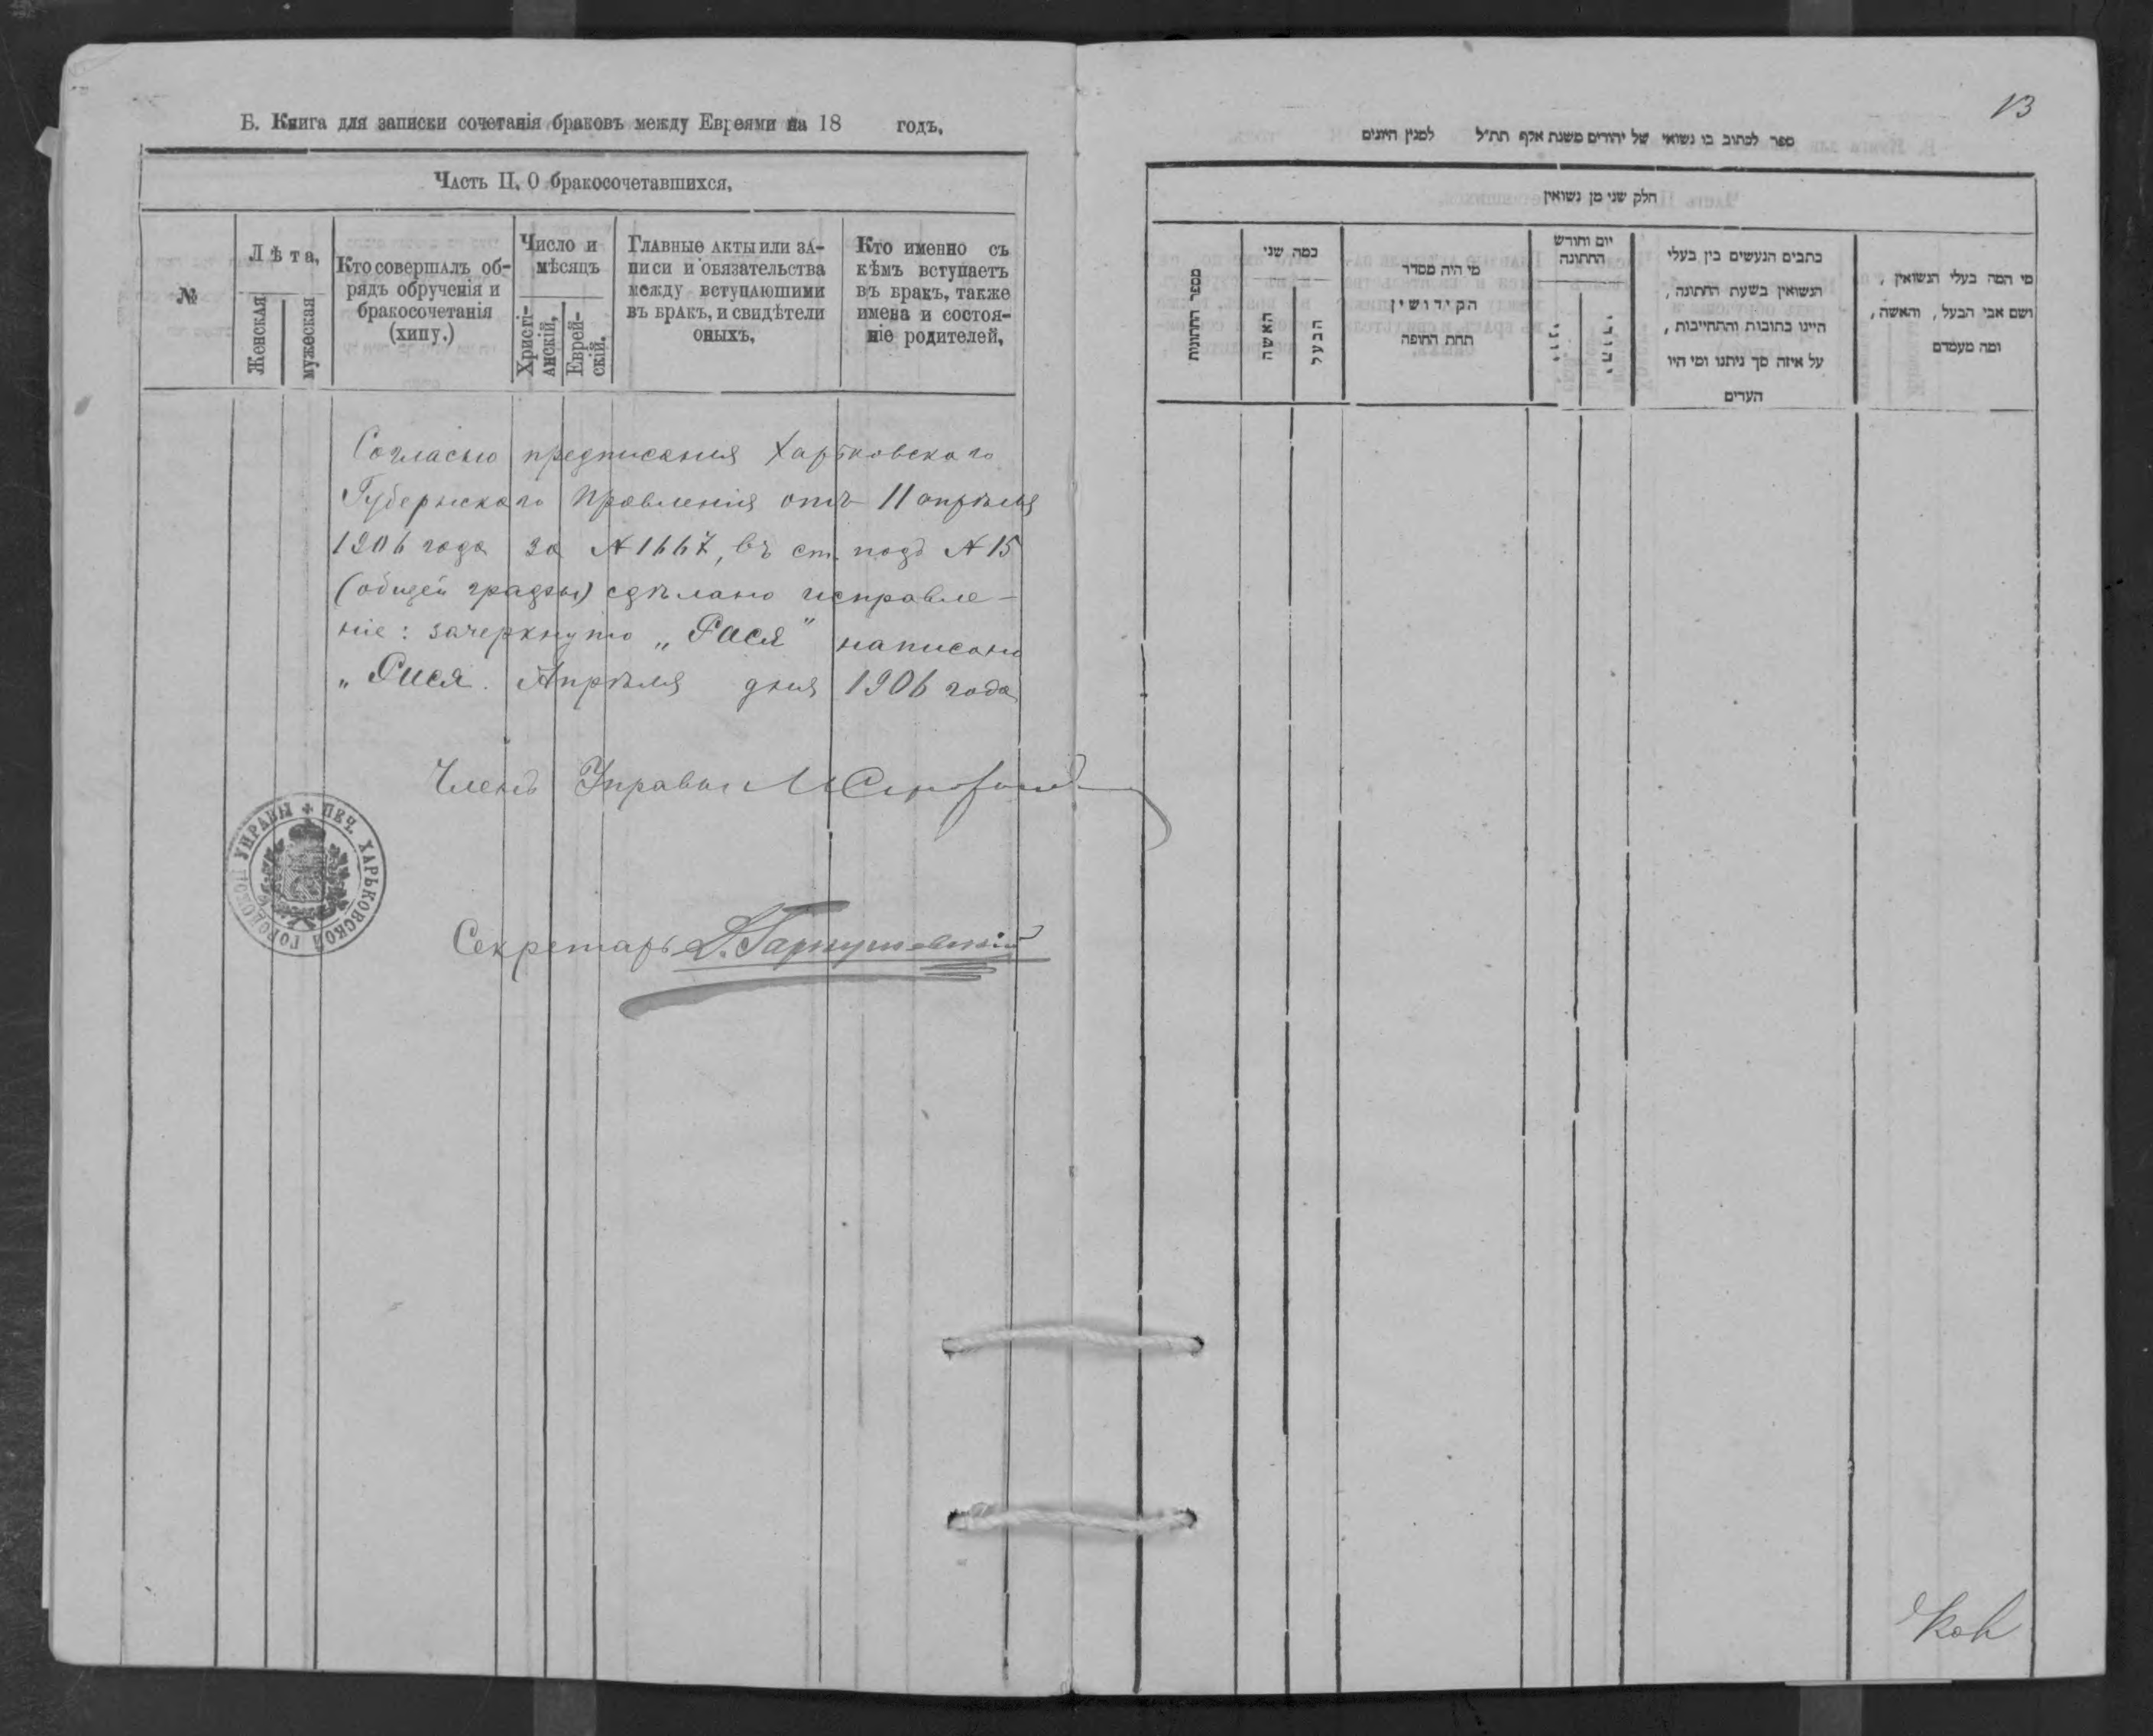 Б. Книга для записки сочетанія браковъ между Евреями на 18 годъ.
Часть II. О бракосочетавшихся.
№
Лѣта.
Женская
мужеская
Кто совершалъ об-
рядъ обрученія и
бракосочетанія
(хипу.)
Число и
мѣсяцъ
Христі-
анскій.
Еврей-
скій.
Главные акты или за-
писи и обязательства
между вступающими
въ бракъ, и свидѣтели
оныхъ.
Кто именно съ
кѣмъ вступаетъ
въ бракъ, также
имена и состоя-
ніе родителей.
Согласно предписанія Харьковскаго
Губернскаго Правленія отъ 11 апрѣля
1906 года за № 1667, въ ст. подъ № 15
(общей графы) сдѣлано исправле-
ніе: зачеркнуто „Рася" написано
„Рися. Апрѣля дня 1906 года
Членъ Управы
Секретарь
ПЕЧ. ХАРЬКОВСКОЙ ГОРОДСКОЙ УПРАВЫ
13
ספר לכתוב בו נשואי של יהודים משנת אלף תת״ל למנין היונים
חלק שני מן נשואין
מספר החתונות
כמה שני
האשה
הבעל
מי היה מסדר
הקידושין
תחת החופה
יום וחודש
החתונה
יוני
יהודי
כתבים הנעשים בין בעלי
הנשואין בשעת החתונה,
היינו כתובות והתחייבות,
על איזה סך ניתנו ומי היו
העדים
מי המה בעלי הנשואין,
ושם אבי הבעל, והאשה,
ומה מעמדם